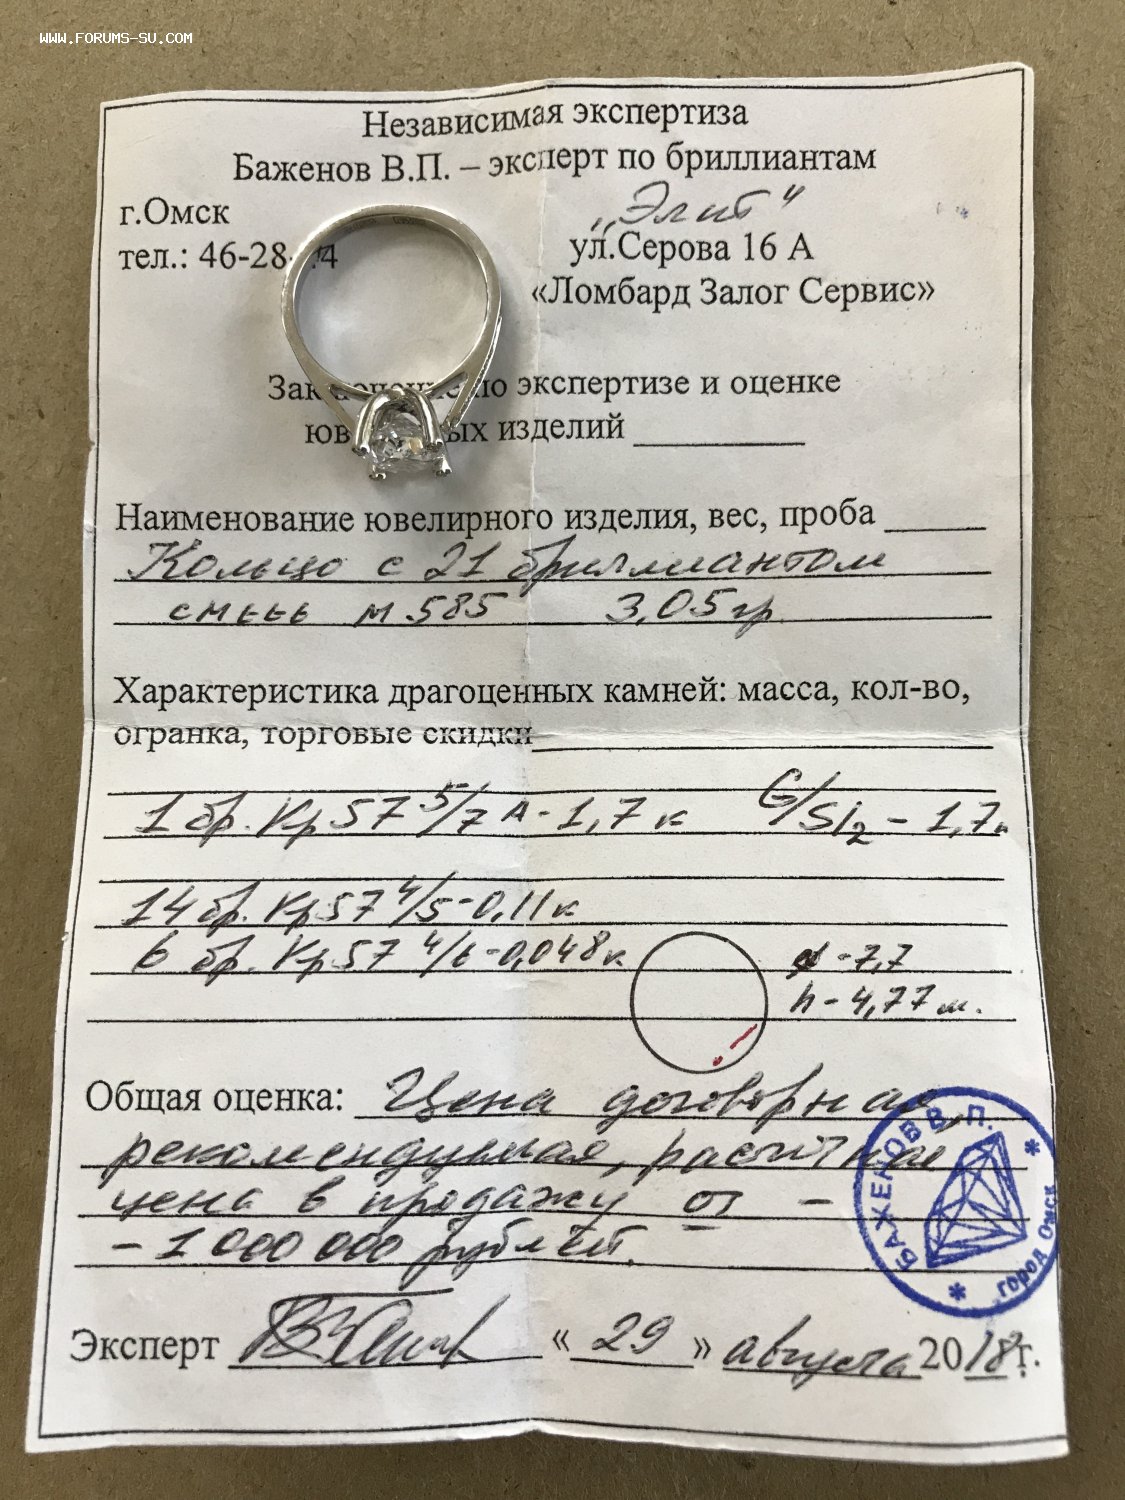 WWW.FORUMS-SU.COM
Независимая экспертиза
Баженов В.П. – эксперт по бриллиантам
г.Омск „Элит"
тел.: 46-28- 4 ул.Серова 16 А
«Ломбард Залог Сервис»
по экспертизе и оценке
изделий
Наименование ювелирного изделия, вес, проба
Кольцо с 21 бриллиантом
м.585 3,05гр
Характеристика драгоценных камней: масса, кол-во,
огранка, торговые скидки
1 бр. Кр 57 5/7 А - 1,7 к G/SI2 - 1,7к
14 бр. Кр 57 4/5 - 0,11 к
6 бр. Кр 57 4/6 - 0,048 к - 7,7
h - 4,77 м.
Общая оценка: Цена договорная
рекомендуемая, расчётная
цена в продажу от -
- 1 000 000 рублей.
БАЖЕНОВ В. П.
город Омск
Эксперт « 29 » августа 2018г.